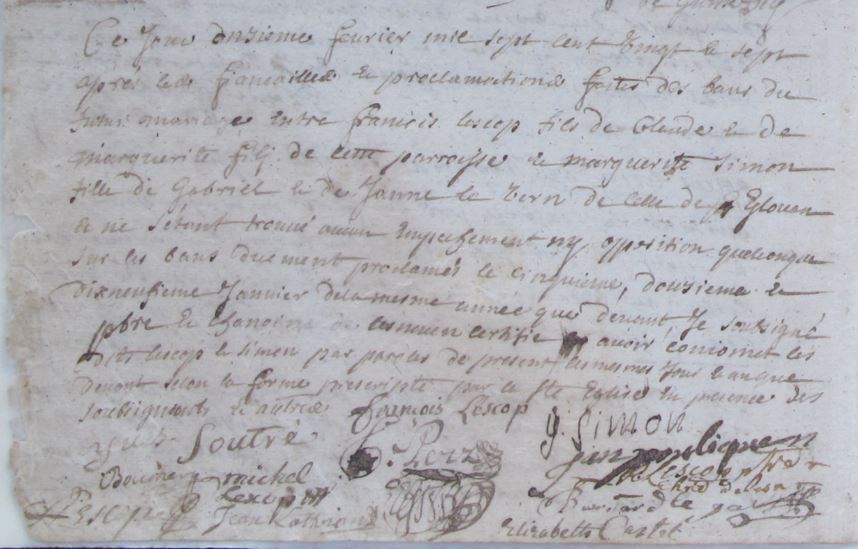 Ce Jour onzieme fevrier mil sept cent vingt & sept
apres les fiancailles & proclamations faites des bans du
futur mariage entre francois lescop fils de Claude & de
marguerite fily de cette parroisse & marguerite simon
fille de Gabriel & de Janne le Vern de celle de Glouan
& ne s'etant trouvé aucun Empechement ny opposition quelconque
sur les bans duement proclamés le cinquieme, douzieme &
dixneufieme Janvier de la mesme année que devant, Je soubsigné
pbre & chanoine certifie avoir conjoinct les
dits lescop & simon par paroles de present les mesmes Jour & an que
devant selon la forme prescripte par la Ste Eglise En presence des
soubsignants & autres francois Lescop
g. Simon
Soutré
michel
Lescop
Jean
Bernard le
Elizabeth